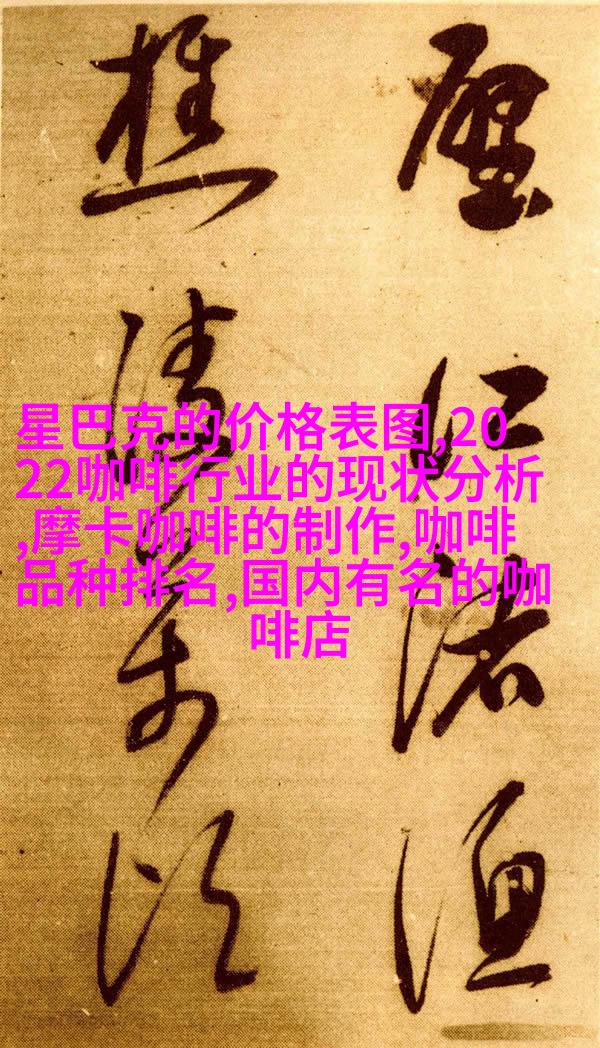 壁江渚渔
樵
星巴克的价格表图,20
22咖啡行业的现状分析
,摩卡咖啡的制作,咖啡
品种排名,国内有名的咖
啡店